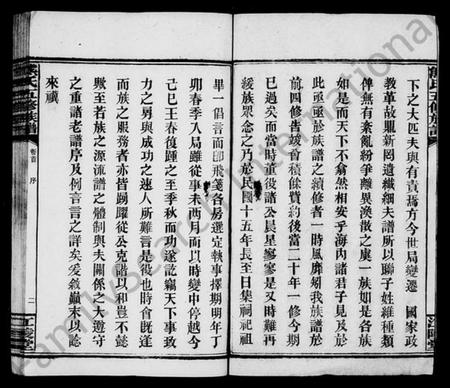 下之大匹夫與有責焉方今世局變遷　國家政
教革故鼎新罔遺纖細夫譜所以聯子姓維種類
俾無有紊亂紛爭離異渙散之虞一族如是各族
如是而天下不翕然相安乎海內諸君子見及於
此亟亟於族譜之續修者一時風靡矧我族譜於
前四修告竣會積餘貲約後當二十年一修今期
已過矣而當時董役諸公晨星寥寥是又時難再
緩族眾念之乃於民國十五年長至日集祠祀祖
畢一倡言而即飛箋各房選定執事擇期明年丁
卯春季入局雖從事未兩月而以時變中停越今
己巳王春復踵之至季秋而功遂訖竊天下事致
力之勇與成功之速人所難言是役也時會既逢
而族之服務者亦皆踴躍從公克諧以和豈不懿
歟至若族之源流譜之體制與夫關係之大遵守
之重諸老譜序及例言言之詳矣爰敘顛末以誌
來禩
卷首　序
二